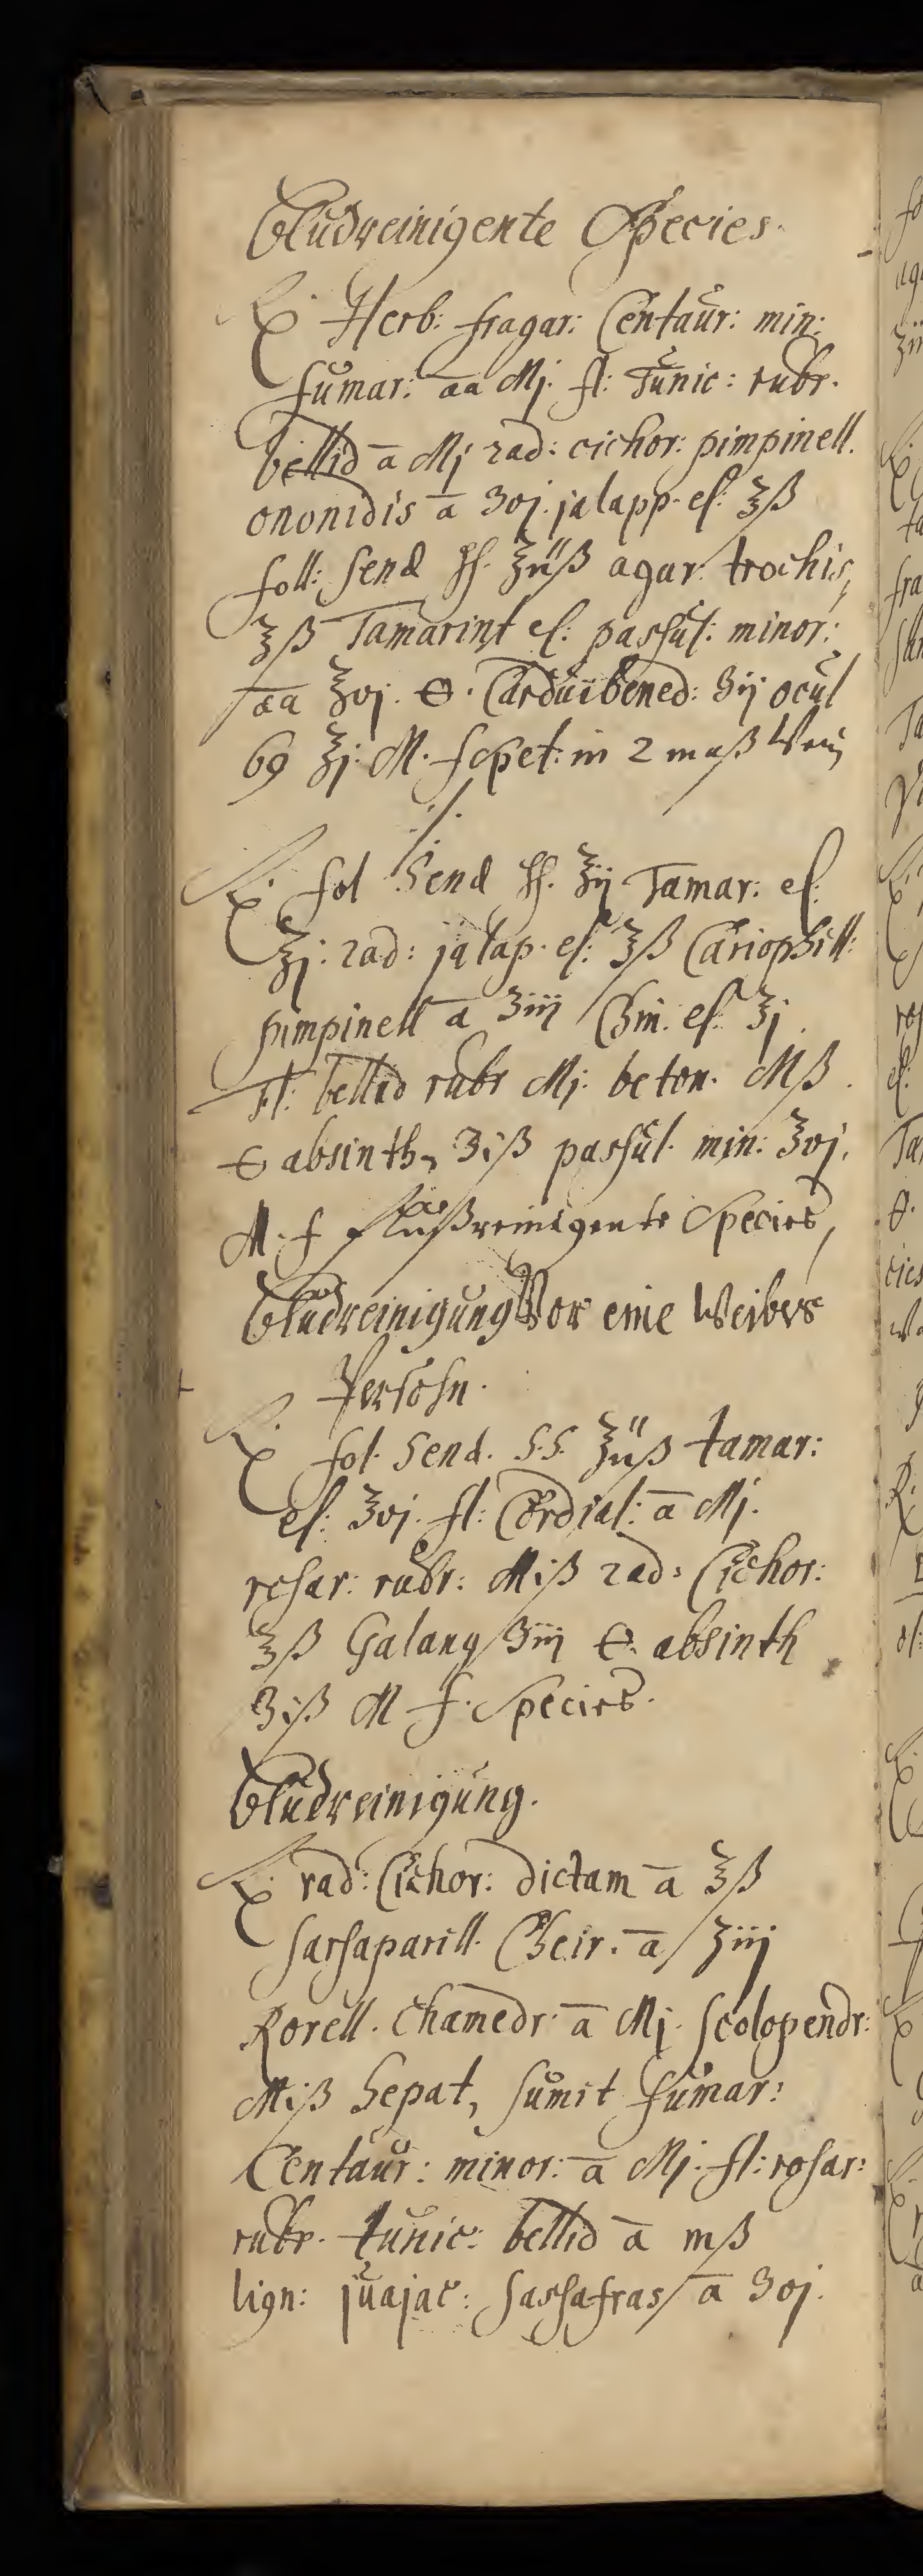 Bludreinigente Species.
℞. Herb: fragar: Centaur: min:
fumar: aa Mj. fl: Tunic: rubr.
bellid a Mj rad: cichor: pimpinell.
ononidis a ʒvj. jalapp. el: ℥ß
foll: Senæ ſſ. ℥iiß agar. trochis,
℥ß Tamarint el: passul: minor:
aa ℥vj. ⊖. Cardui bened: ʒij ocul
69 ℥j. M. f spet: in 2 maß Wein
./.
℞. fol Senæ ſſ. ℥ij Tamar: el:
℥j. rad: jalap. el: ℥ß Cariophill:
pimpinell a ʒiij Chin. el. ℥j.
Fl: bellid rubr Mj. beton. Mß.
⊖ absinth, ʒiß passul. min: ʒvj.
M. f flußreinigente Species,
Bludreinigung Vor eine Weibers
Persohn.
℞. fol. Senæ. S.S. ℥iiß tamar:
el: ʒvj. fl: Cordial: a Mj.
rosar: rubr: Miß rad: Cichor:
℥ß Galang ʒiij ⊖. absinth
ʒiß M f. Species.
Bludreinigung.
℞. rad: Cichor: dictam a ℥ß
Sarsaparill. Chin. a ʒiij
Rorell. Chamedr. a Mj. scolopendr:
Miß hepat, fumar:
Centaur: minor: a Mj. fl: rosar:
rubr. tunic: bellid a mß
lign: juajac: sassafras a ʒvj.